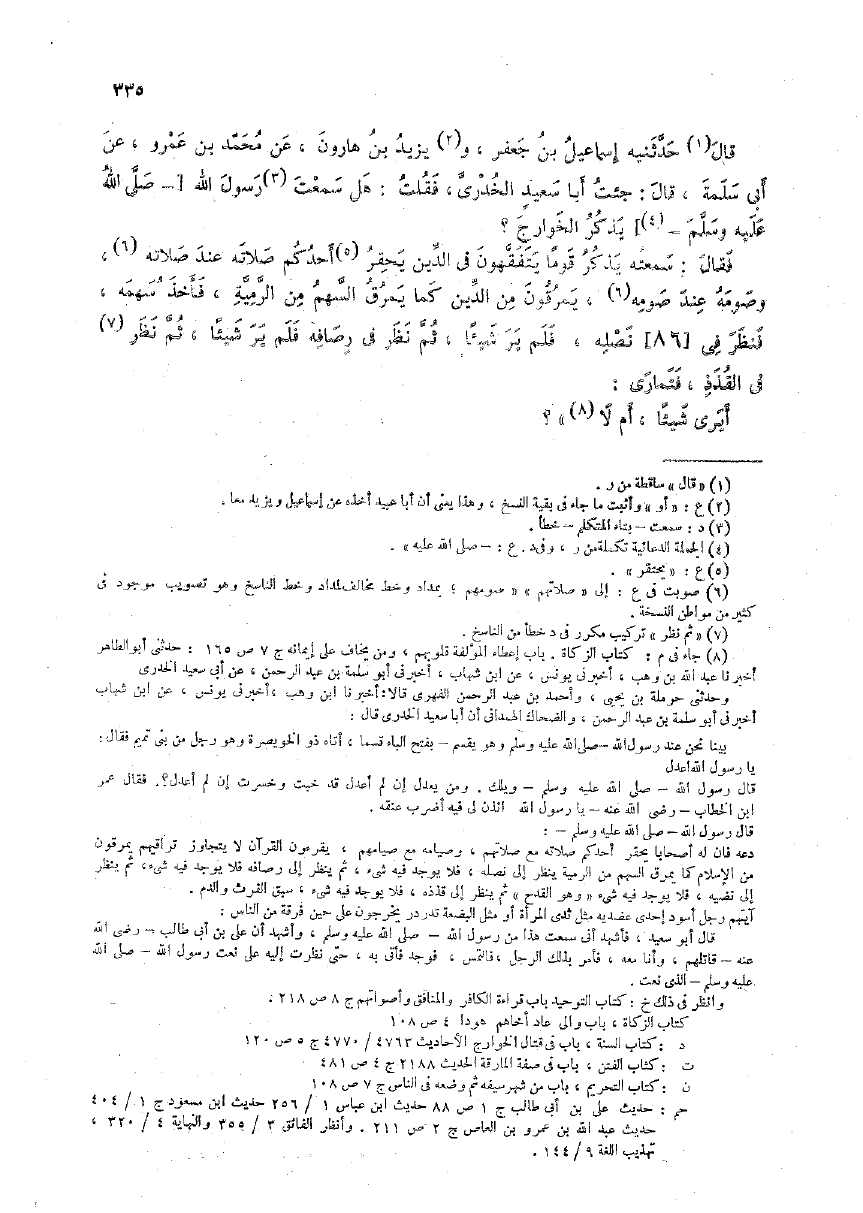 ٣٣٥
قالَ(١) حَدَّثَنيه إسماعيلُ بنُ جَعفر ، و(٢) يزيدُ بنُ هارونَ ، عَن مُحَمَّد بن عَمْرو ، عَنْ
أَبِى سَلَمةَ ، قالَ : جئتُ أَبا سَعيد الخُدْرىَّ ، فَقُلتُ : هَل سَمعْتَ (٣) رَسولَ الله [ – صَلَّى اللهُ
عَلَيه وَسَلَّمَ – (٤)] يَذكُرُ الخَوارجَ ؟
فَقالَ : سَمعتُه يَذكُرُ قَومًا يَتَفَقَّهونَ فى الدِّين يَحقِرُ (٥) أَحدُكُم صَلاتَه عندَ صَلاته (٦) ،
وصَومَهُ عِندَ صَومِه(٦) ، يَمرقُونَ مِن الدِّين كَما يَمرُقُ السَّهمُ مِن الرَّمِيَّةِ ، فَأَخذَ سَهمَه ،
فَنظَرَ فِى [٨٦] نَصْلِه ، فَلَم يَرَ شَيئًا ، ثُمَّ نَظَر فى رِصَافِه فَلَم يَرَ شَيئًا ، ثُمَّ نَظَر (٧)
فى القُذَذِ ، فَتَمارَى :
أَيَرى شَيئًا ، أَم لَا (٨) » ؟
(١) « قال » ساقطة من ر .
(٢) ع : « أو » وأثبت ما جاء فى بقية النسخ ، وهذا يعنى أن أبا عبيد أخذه عن إسماعيل ويزيد معا .
(٣) د : سمعت – بتاء المتكلم – خطأ .
(٤) الجملة الدعائية تكملة من ر ، وفى د . ع : – صلى الله عليه » .
(٥) ع : « يحتقر » .
(٦) صوبت فى ع : إلى « صلاتهم » « صومهم ؛ بمداد وخط مخالف لمداد وخط الناسخ وهو تصويب موجود فى
كثير من مواطن النسخة .
(٧) « ثم نظر » تركيب مكرر فى د خطأ من الناسخ .
(٨) جاء فى م : كتاب الزكاة . باب إعطاء المؤلفة قلوبهم ، ومن يخاف على إيمانه ج ٧ ص ١٦٥ : حدثنى أبو الطاهر
أخبرنا عبد الله بن وهب ، أخبرنى يونس ، عن ابن شهاب ، أخبرنى أبو سلمة بن عبد الرحمن ، عن أبى سعيد الخدرى
وحدثنى حرملة بن يحيى ، وأحمد بن عبد الرحمن الفهرى قالا: أخبرنا ابن وهب ، أخبرنى يونس ، عن ابن شهاب
أخبرنى أبو سلمة بن عبد الرحمن ، والضحاك الهمدانى أن أبا سعيد الخدرى قال :
بينا نحن عند رسول الله – صلى الله عليه وسلم وهو يقسم – بفتح الياء قسما ، أتاه ذو الخويصرة وهو رجل من بنى تميم فقال :
يا رسول الله اعدل
قال رسول الله – صلى الله عليه وسلم – ويلك . ومن يعدل إن لم أعدل قد خبت وخسرت إن لم أعدل ؟. فقال عمر
ابن الخطاب – رضى الله عنه – يا رسول الله ائذن لى فيه أضرب عنقه .
قال رسول الله – صلى الله عليه وسلم – :
دعه فان له أصحابا يحقر أحدكم صلاته مع صلاتهم ، وصيامه مع صيامهم ، يقرءون القرآن لا يتجاوز تراقيهم يمرقون
من الإسلام كما يمرق السهم من الرمية ينظر إلى نصله ، فلا يوجد فيه شىء ، ثم ينظر إلى رصافه فلا يوجد فيه شىء، ثم ينظر
إلى نضيه ، فلا يوجد فيه شىء « وهو القدح » ثم ينظر إلى قذذه ، فلا يوجد فيه شىء ، سبق الفرث والدم .
آيتهم رجل أسود إحدى عضديه مثل ثدى المرأة أو مثل البضعة تدردر يخرجون على حين فرقة من الناس :
قال أبو سعيد ، فأشهد أنى سمعت هذا من رسول الله – صلى الله عليه وسلم ، وأشهد أن على بن أبى طالب – رضى الله
عنه – قاتلهم ، وأنا معه ، فأمر بذلك الرجل ، فالتمس ، فوجد فأتى به ، حتى نظرت إليه على نعت رسول الله – صلى الله
عليه وسلم – الذى نعت .
وانظر فى ذلك خ : كتاب التوحيد باب قراءة الكافر والمنافق وأصواتهم ج ٨ ص ٢١٨ .
كتاب الزكاة ، باب والى عاد أخاهم هودا ٤ ص ١٠٨
د : كتاب السنة ، باب فى قتال الخوارج الأحاديث ٤٧٦٣ / ٤٧٧٠ ج ٥ ص ١٢٠
ت : كتاب الفتن ، باب فى صفة المارقة الحديث ٢١٨٨ ج ٤ ص ٤٨١
ن : كتاب التحريم ، باب من شهر سيفه ثم وضعه فى الناس ج ٧ ص ١٠٨
حم : حديث على بن أبى طالب ج ١ ص ٨٨ حديث ابن عباس ١ / ٢٥٦ حديث ابن مسعود ج ١ / ٤٠٤
حديث عبد الله بن عمرو بن العاص ج ٢ ص ٢١١ . وأنظر الفائق ٣ / ٣٥٥ والنهاية ٤ / ٣٢٠ ،
تهذيب اللغة ٩ / ١٤٤ .